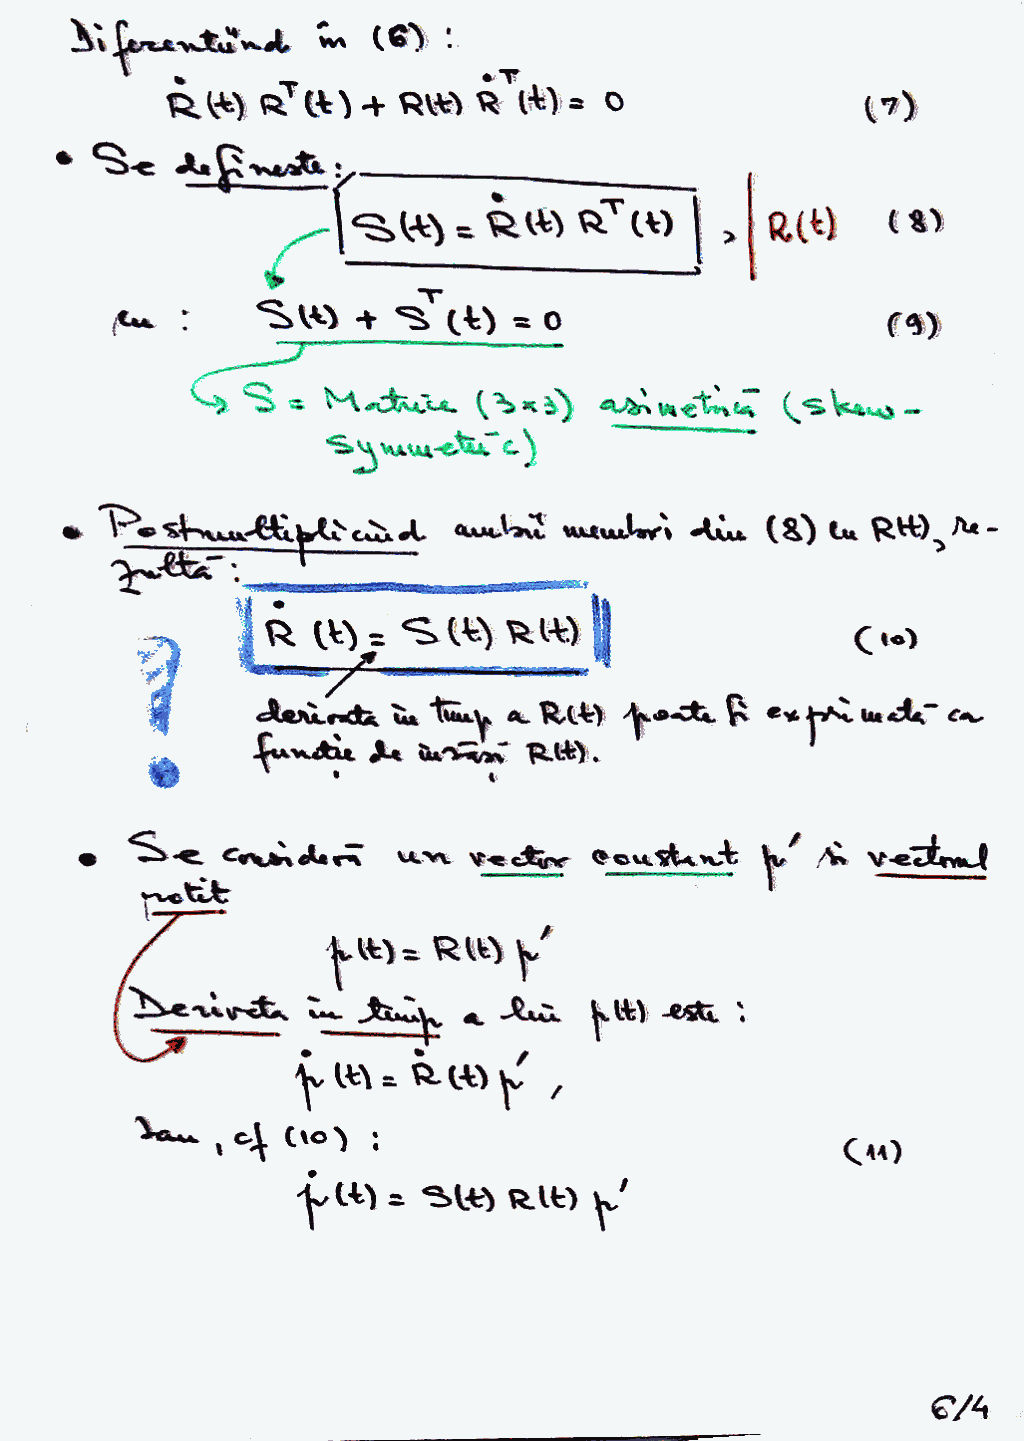 Diferențiind în (6) :
Ṙ(t) Rᵀ(t) + R(t) Ṙᵀ(t) = 0 (7)
• Se definește :
S(t) = Ṙ(t) Rᵀ(t) , | R(t) (8)
cu : S(t) + Sᵀ(t) = 0 (9)
S = Matrice (3x3) asimetrică (skew-
symmetric)
• Postmultiplicând ambii membri din (8) cu R(t), re-
zultă :
Ṙ(t) = S(t) R(t) (10)
!
derivata în timp a R(t) poate fi exprimată ca
funcție de însăși R(t).
• Se consideră un vector constant p' și vectorul
rotit
p(t) = R(t) p'
Derivata în timp a lui p(t) este :
ṗ(t) = Ṙ(t) p' ,
sau, cf (10) : (11)
ṗ(t) = S(t) R(t) p'
6/4